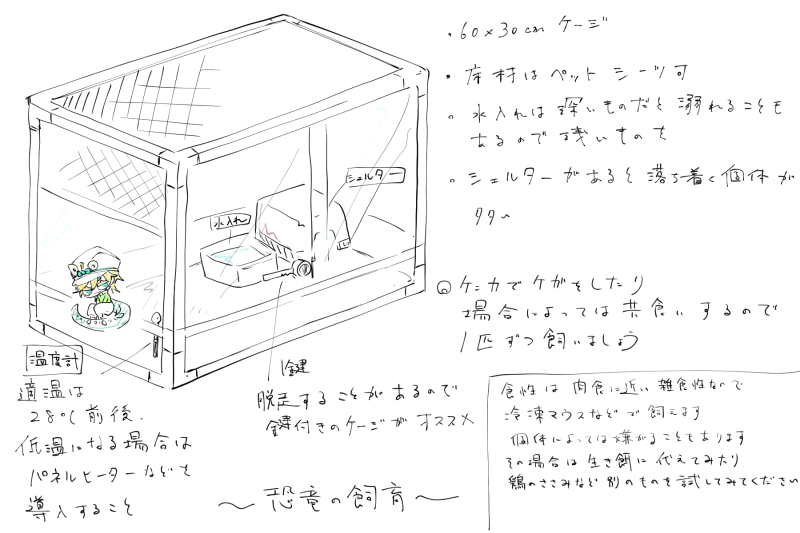 ・60×30cm ケージ
・床材はペットシーツ可
。水入れは深いものだと溺れることも
あるので浅いものを
。シェルターがあると落ち着く個体が
多い
シェルター
水入れ
◎ケンカでケガをしたり
場合によっては共食いするので
1匹ずつ飼いましょう
温度計
適温は
28℃前後.
低温になる場合は
パネルヒーターなどを
導入すること
鍵
脱走することがあるので
鍵付きのケージがオススメ
食性は肉食に近い雑食性なので
冷凍マウスなどで飼えます
個体によっては嫌がることもあります
その場合は生き餌に代えてみたり
鶏のささみなど別のものを試してみてください
〜恐竜の飼育〜